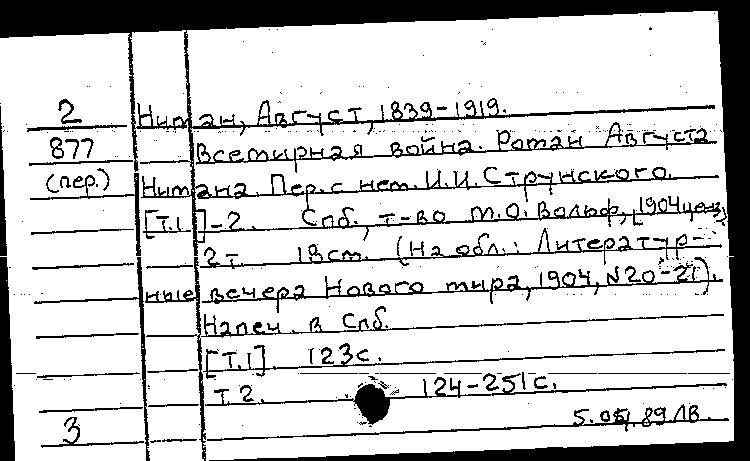 2 Ниман, Август, 1839-1919.
877 Всемирная война. Роман Августа
(пер.) Нимана. Пер. с нем. И.И. Струнского.
[Т.1]-2. Спб., т-во М.О. Вольф, [1904 ценз]
2 т. 18 см. (На обл.: Литератур-
ные вечера Нового мира, 1904, №20-21).
Напеч. в Спб.
[Т.1]. 123 с.
Т. 2. 124-251 с.
3 5.05.89 ЛВ.